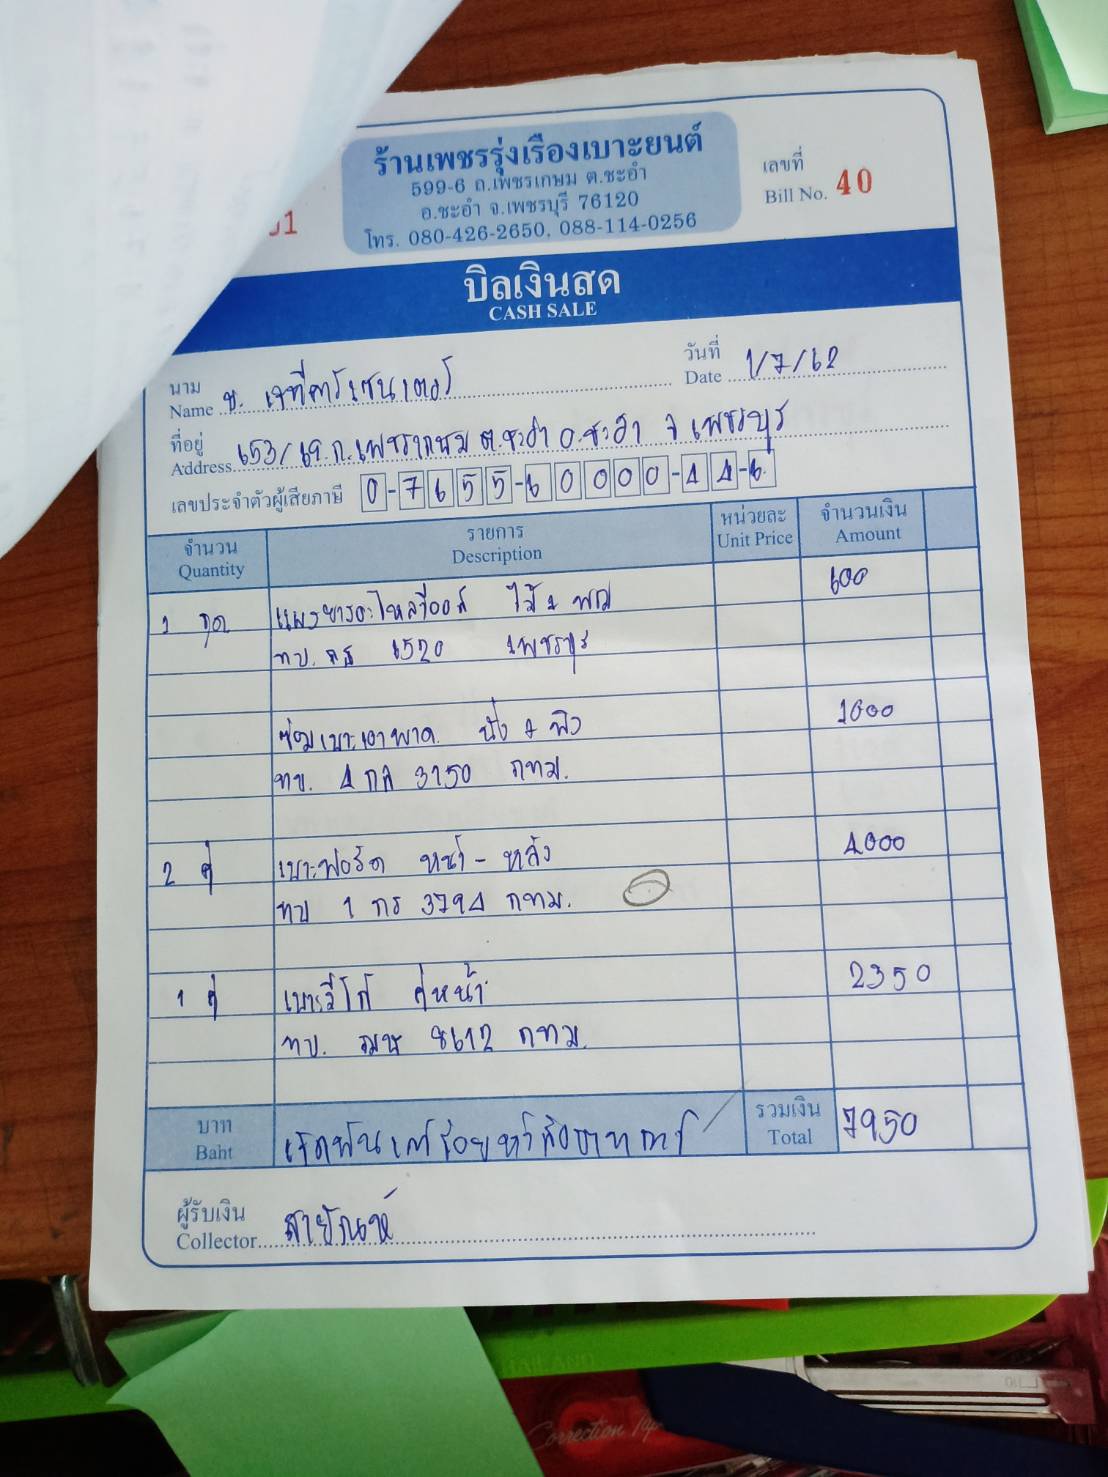 ร้านเพชรรุ่งเรืองเบาะยนต์
599-6 ถ.เพชรเกษม ต.ชะอำ
อ.ชะอำ จ.เพชรบุรี 76120
โทร. 080-426-2650, 088-114-0256
เลขที่
Bill No. 40
01
บิลเงินสด
CASH SALE
นาม
Name ช. เจทีคาร์เซนเตอร์
วันที่
Date 1/7/62
ที่อยู่
Address 653/69 ถ.เพชรเกษม ต.ชะอำ อ.ชะอำ จ.เพชรบุรี
เลขประจำตัวผู้เสียภาษี 0-7655-60000-44-6
จำนวน รายการ หน่วยละ จำนวนเงิน
Quantity Description Unit Price Amount
1 ชุด 600
ทบ. 6520 เพชรบุรี
ซ่อมเบาะ นั่ง + พิง 1000
ทบ. 4 กก 3150 กทม.
2 คู่ เบาะฟอร์ด หน้า - หลัง 4000
ทบ 1 กร 3794 กทม.
1 คู่ เบาะวีโก้ คู่หน้า 2350
ทบ. ฒษ 8612 กทม.
บาท เจ็ดพันเก้าร้อยห้าสิบบาทถ้วน รวมเงิน 7950
Baht Total
ผู้รับเงิน
Collector สายัณห์
Correction Tape